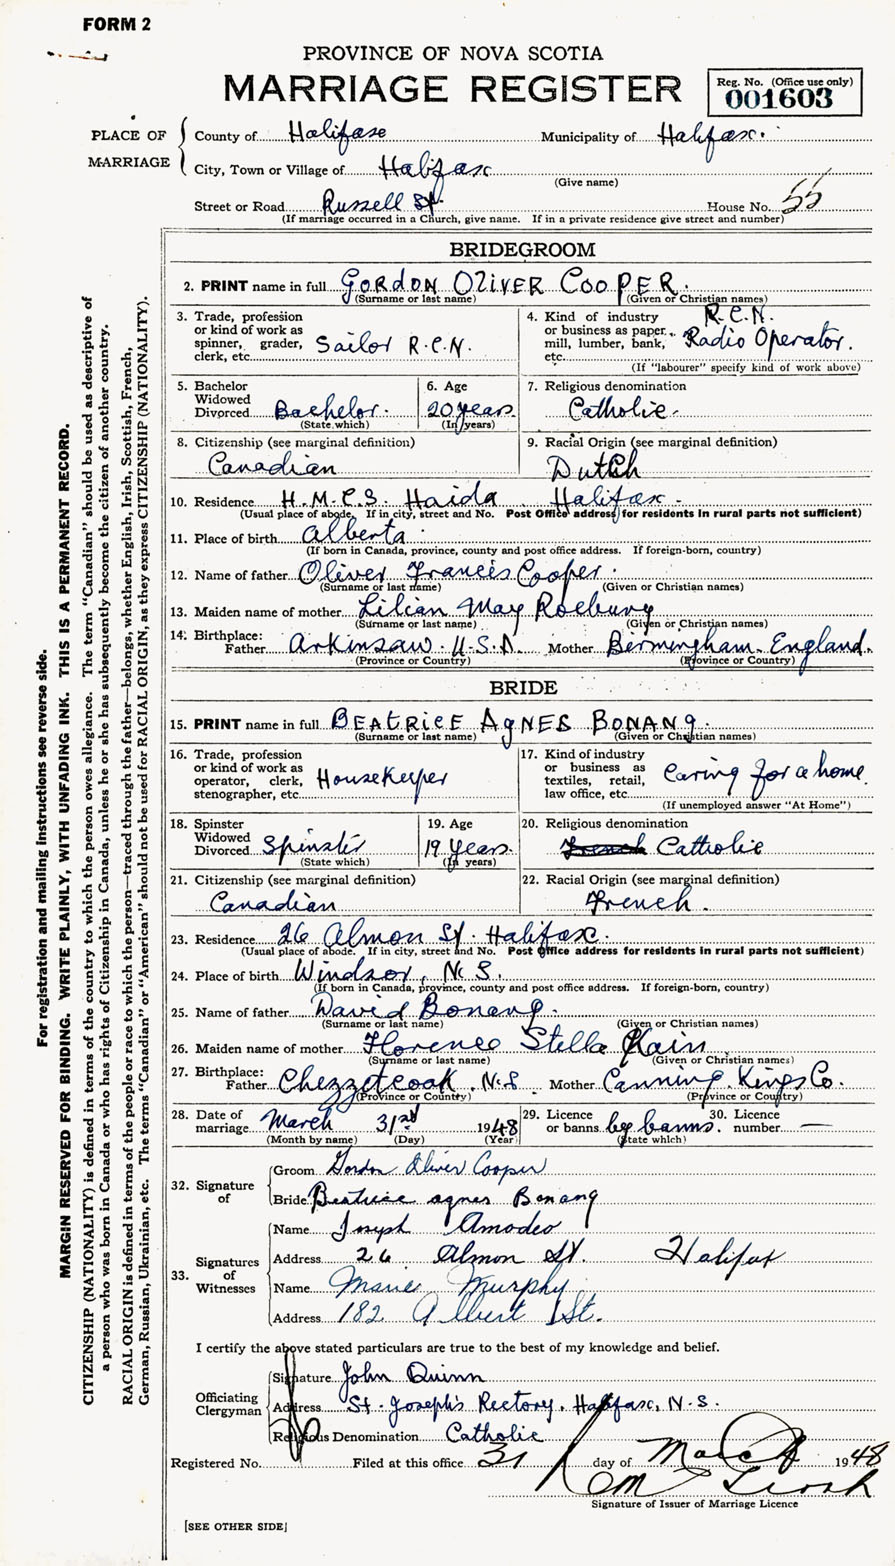 FORM 2
PROVINCE OF NOVA SCOTIA
MARRIAGE REGISTER
Reg. No. (Office use only)
001603
PLACE OF MARRIAGE
County of Halifax Municipality of Halifax.
City, Town or Village of Halifax
(Give name)
Street or Road Russell St. House No. 55
(If marriage occurred in a Church, give name. If in a private residence give street and number)
BRIDEGROOM
2. PRINT name in full GORDON OLIVER COOPER.
(Surname or last name) (Given or Christian names)
3. Trade, profession or kind of work as spinner, grader, clerk, etc. Sailor R.C.N.
4. Kind of industry or business as paper mill, lumber, bank, etc. R.C.N. Radio Operator.
(If "labourer" specify kind of work above)
5. Bachelor Widowed Divorced Bachelor.
(State which)
6. Age 20 years
(In years)
7. Religious denomination
Catholic.
8. Citizenship (see marginal definition)
Canadian
9. Racial Origin (see marginal definition)
Dutch
10. Residence H.M.C.S. Haida Halifax.
(Usual place of abode. If in city, street and No. Post Office address for residents in rural parts not sufficient)
11. Place of birth Alberta
(If born in Canada, province, county and post office address. If foreign-born, country)
12. Name of father Oliver Francis Cooper.
(Surname or last name) (Given or Christian names)
13. Maiden name of mother Lilian May Roebury
(Surname or last name) (Given or Christian names)
14. Birthplace: Father Arkinsaw. U.S.A. Mother Birmingham. England.
(Province or Country) (Province or Country)
BRIDE
15. PRINT name in full BEATRICE AGNES BONANG.
(Surname or last name) (Given or Christian names)
16. Trade, profession or kind of work as operator, clerk, stenographer, etc. Housekeeper
17. Kind of industry or business as textiles, retail, law office, etc. Caring for a home.
(If unemployed answer "At Home")
18. Spinster Widowed Divorced Spinster
(State which)
19. Age 19 years.
(In years)
20. Religious denomination
French Catholic
21. Citizenship (see marginal definition)
Canadian
22. Racial Origin (see marginal definition)
French.
23. Residence 26 Almon St. Halifax.
(Usual place of abode. If in city, street and No. Post Office address for residents in rural parts not sufficient)
24. Place of birth Windsor, N.S.
(If born in Canada, province, county and post office address. If foreign-born, country)
25. Name of father David Bonang.
(Surname or last name) (Given or Christian names)
26. Maiden name of mother Florence Stella Kain
(Surname or last name) (Given or Christian names)
27. Birthplace: Father Chezzetcoak, N.S Mother Canning. Kings Co.
(Province or Country) (Province or Country)
28. Date of marriage March 31st 1948
(Month by name) (Day) (Year)
29. Licence or banns by banns.
(State which)
30. Licence number —
32. Signature of
Groom Gordon Oliver Cooper
Bride Beatrice agnes Bonang
33. Signatures of Witnesses
Name Joseph Amodeo
Address 26 Almon St. Halifax
Name Marie Murphy
Address 182 Albert St.
I certify the above stated particulars are true to the best of my knowledge and belief.
Officiating Clergyman
Signature John Quinn
Address St. Joseph's Rectory, Halifax, N.S.
Religious Denomination Catholic
Registered No. Filed at this office 31 day of March 1948
Signature of Issuer of Marriage Licence
[SEE OTHER SIDE]
For registration and mailing instructions see reverse side.
MARGIN RESERVED FOR BINDING. WRITE PLAINLY, WITH UNFADING INK. THIS IS A PERMANENT RECORD.
CITIZENSHIP (NATIONALITY) is defined in terms of the country to which the person owes allegiance. The term "Canadian" should be used as descriptive of
a person who was born in Canada or who has rights of Citizenship in Canada, unless he or she has subsequently become the citizen of another country.
RACIAL ORIGIN is defined in terms of the people or race to which the person—traced through the father—belongs, whether English, Irish, Scottish, French,
German, Russian, Ukrainian, etc. The terms "Canadian" or "American" should not be used for RACIAL ORIGIN, as they express CITIZENSHIP (NATIONALITY).